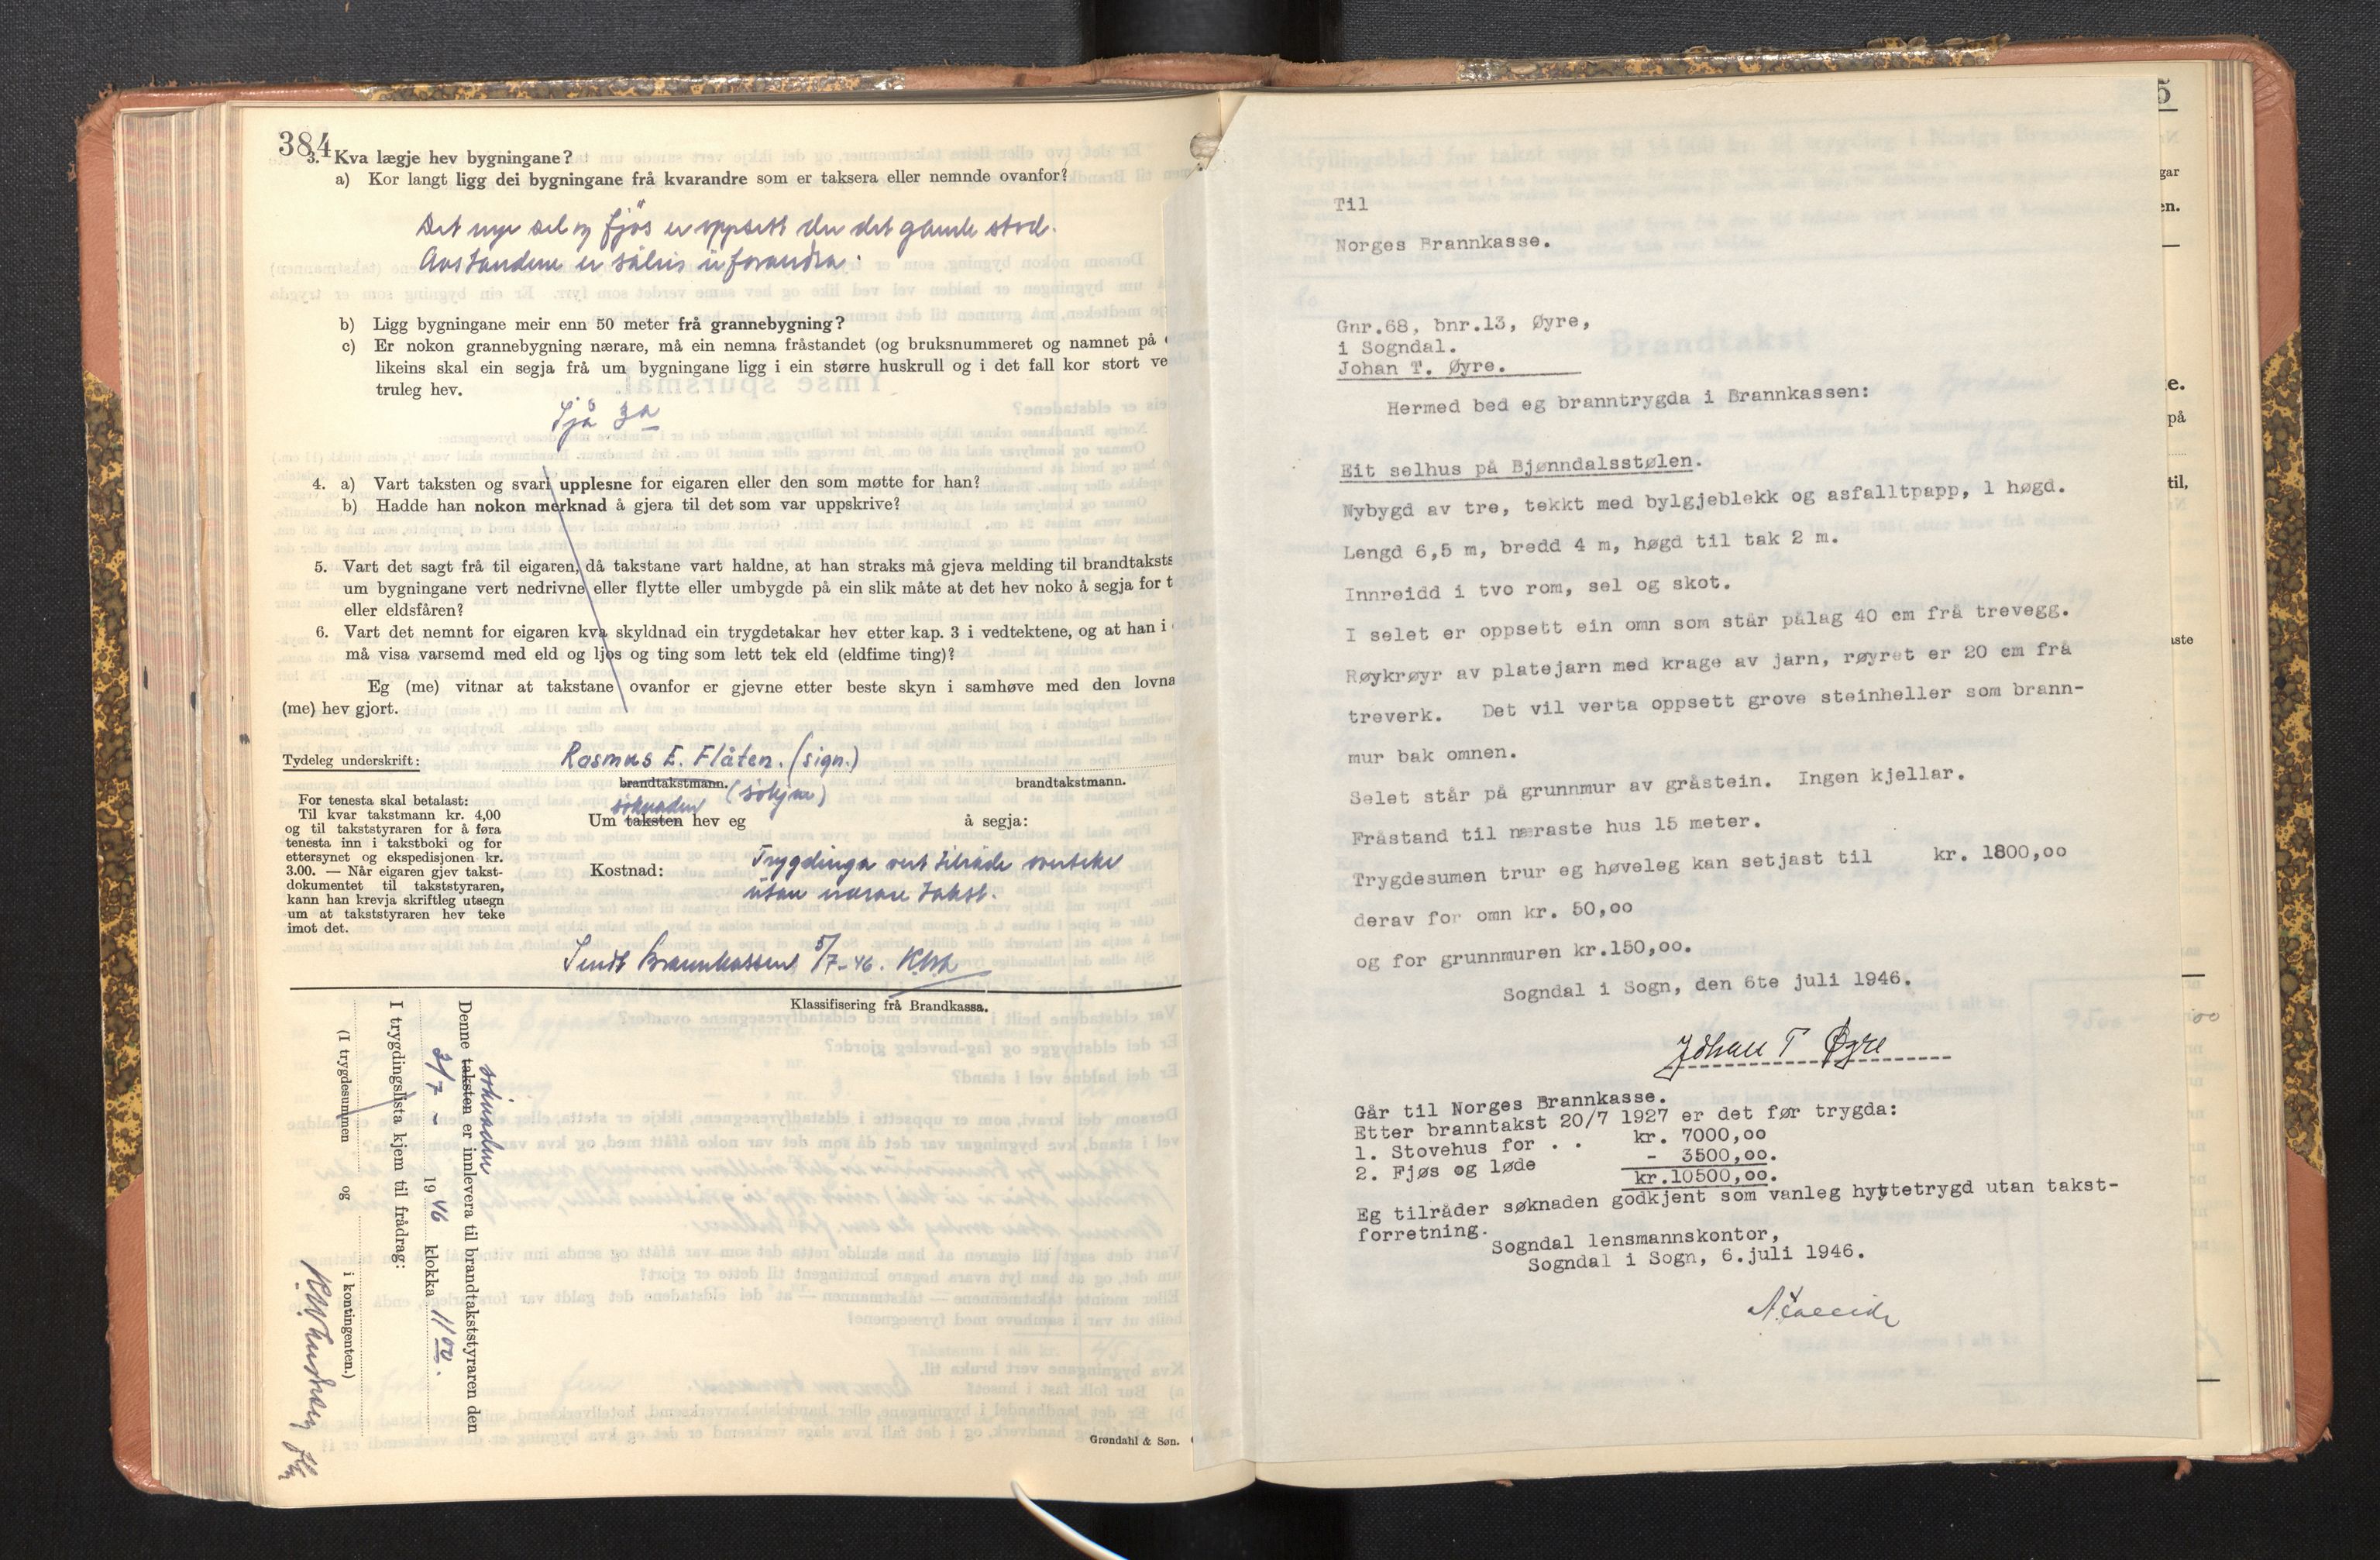 384
3. Kva lægje hev bygningane?
a) Kor langt ligg dei bygningane frå kvarandre som er taksera eller nemnde ovanfor?
Det nye sel og fjøs er oppsett der det gamle stod.
Avstandene er såleis uforandra.
b) Ligg bygningane meir enn 50 meter frå grannebygning?
c) Er nokon grannebygning nærare, må ein nemna fråstandet (og bruksnummeret og namnet på
likeins skal ein segja frå um bygningane ligg i ein større huskrull og i det fall kor stort ve
truleg hev.
Sjå 3a
4. a) Vart taksten og svari upplesne for eigaren eller den som møtte for han?
b) Hadde han nokon merknad å gjera til det som var uppskrive?
5. Vart det sagt frå til eigaren, då takstane vart haldne, at han straks må gjeva melding til brandtaksts
um bygningane vert nedrivne eller flytte eller umbygde på ein slik måte at det hev noko å segja for t
eller eldsfåren?
6. Vart det nemnt for eigaren kva skyldnad ein trygdetakar hev etter kap. 3 i vedtektene, og at han i
må visa varsemd med eld og ljos og ting som lett tek eld (eldfime ting)?
Eg (me) vitnar at takstane ovanfor er gjevne etter beste skyn i samhøve med den lovna
(me) hev gjort.
Tydeleg underskrift: Rasmus E. Flåten. (sign.)
brandtakstmann. (søkjar) brandtakstmann.
søknaden
Um taksten hev eg å segja:
For tenesta skal betalast:
Til kvar takstmann kr. 4,00
og til takststyraren for å føra
tenesta inn i takstboki og for
ettersynet og ekspedisjonen kr.
3.00. — Når eigaren gjev takst-
dokumentet til takststyraren,
kann han krevja skriftleg utsegn
um at takststyraren hev teke
imot det.
Kostnad: Trygdinga vert tilråde overteke
utan nærare takst.
Sendt Brannkassen 5/7-46.
Klassifisering frå Brandkassa.
søknaden
Denne taksten er innlevera til brandtakststyraren den
3/7 - 1946 klokka 11 00.
I trygdingslista kjem til frådrag:
(I trygdesummen og i kontingenten.)
Grøndahl & Søn.
Til
Norges Brannkasse.
Gnr.68, bnr.13, Øyre,
i Sogndal.
Johan T. Øyre.
Hermed bed eg branntrygda i Brannkassen:
Eit selhus på Bjønndalsstølen.
Nybygd av tre, tekkt med bylgjeblekk og asfalltpapp, 1 høgd.
Lengd 6,5 m, bredd 4 m, høgd til tak 2 m.
Innreidd i tvo rom, sel og skot.
I selet er oppsett ein omn som står pålag 40 cm frå trevegg.
Røykrøyr av platejarn med krage av jarn, røyret er 20 cm frå
treverk. Det vil verta oppsett grove steinheller som brann-
mur bak omnen.
Selet står på grunnmur av gråstein. Ingen kjellar.
Fråstand til næraste hus 15 meter.
Trygdesumen trur eg høveleg kan setjast til kr. 1800,oo
derav for omn kr. 50,oo
og for grunnmuren kr.150,oo.
Sogndal i Sogn, den 6te juli 1946.
Johan T Øyre
Går til Norges Brannkasse.
Etter branntakst 20/7 1927 er det før trygda:
1. Stovehus for . . kr. 7000,oo
2. Fjøs og løde - 3500,oo.
kr.10500,oo.
Eg tilråder søknaden godkjent som vanleg hyttetrygd utan takst-
forretning.
Sogndal lensmannskontor,
Sogndal i Sogn, 6.juli 1946.
5
gar
en.
e.
på
til,
aste
oo